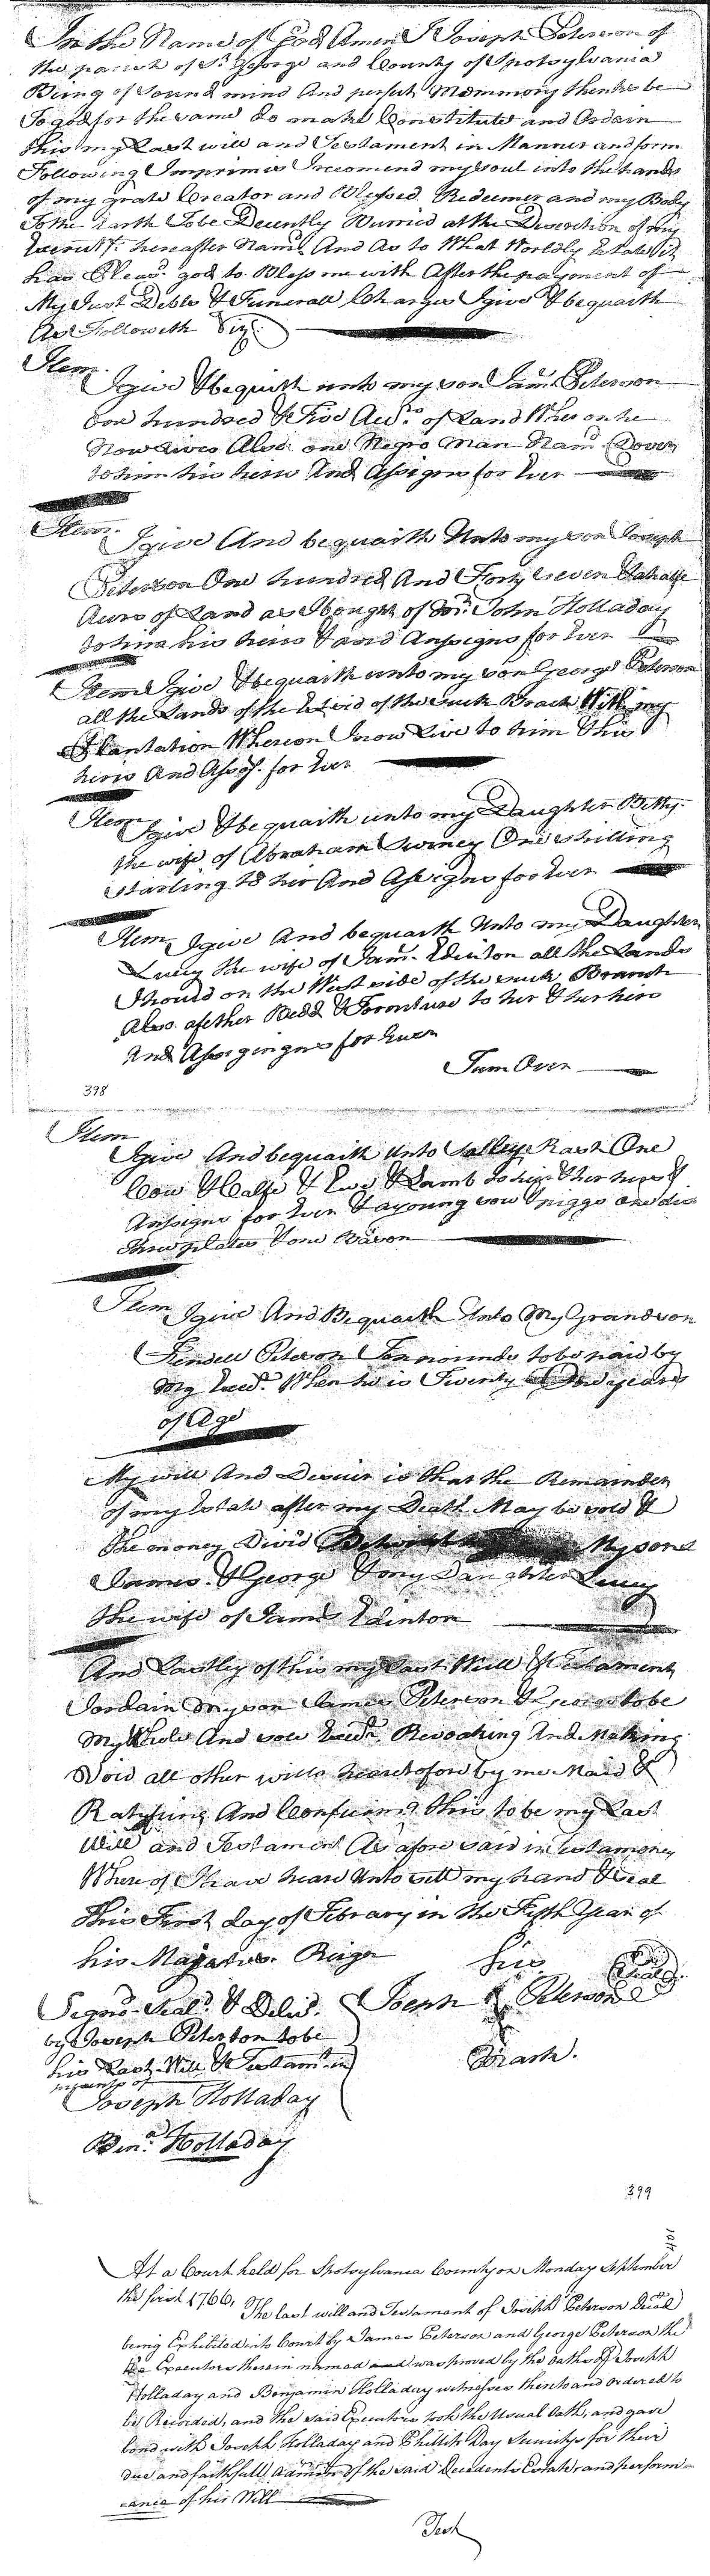 In the Name of God Amen I Joseph Peterson of
the parish of St. George and County of Spotsylvania
Being of Sound mind And perfect Memmory thenks be
To god for the same do make Constitute and Ordain
this my Last will and Testament in Manner and form
Following Imprimis I recomend my soul into the hands
of my grate Creator and Blessed Redeemer and my Body
To the Earth To be Decently Burried at the Discretion of my
Execut.rs hereafter Nam.d And As to What Worldly Estate it
has Pleas.d god to Bless me with After the payment of
My Just Debts & Funerall Charges I give & bequaith
As Followeth Viz.
Item.
I give & bequaith unto my son Jam.s Peterson
one hundred & Five Acr.s of Land Wheron he
Now Lives Also one Negro Man Nam.d Dover
to him his heirs And Assigns for Ever
Item.
I give And bequaith Unto my son Joseph
Peterson One hundred And Forty Seven & a halfe
Acurs of Land as I bought of Mr. John Holladay
to him his heirs & and Assigns for Ever
Item I give & bequaith unto my son George Peterson
all the Lands of the Est sid of the suck Brach With my
Plantation Whereon I now Live to him & his
heirs And Ass.gs. for Ever
Item
I give & bequaith unto my Daughter Betty
the wife of Abraham Swiney One shilling
starling to her And Assigns for Ever
Item I give And bequaith Unto my Daughter
Lucey the wife of Jam.s Edinton all the Lands
I hould on the West side of the suck Branch
Also a fether Bedd & Fornture to her & her hirs
And Assigingns for Ever
Turn Over
398
Item
I give And bequaith Unto Salley Rash One
Cow & Calfe & Ewe & Lamb to her & her heirs &
Assigns for Ever & a young sow & piggs one dis
three plates & one Bason
Item I give And Bequaith Unto My Grandson
Kendell Peterson Ten pounds to be paid by
my Exed.r When he is Twenty One years
of Age
My will And Desier is that the Remainder
of my Estate after my Death May be sold &
the money Divid My sons
James & George & my Daughter Lucey
the wife of James Edinton
And Lastley of this my Last Will & Testament
I ordain my son James Peterson & George to be
My Whole And sole Exed.r Revoaking And Making
Void all other wills heartofore by me Maid &
Ratyfiing And Confirming this to be my Last
Will and Testament As afore said in Testamoney
Where of I have heare Unto sett my hand & Seal
This First day of Febrary in the Fifth Year of
his Majasties Reign his Seal
Segnd. Seal.d & Deliv.d Joseph Peterson
by Joseph Peterson to be
his Last Will & Testam.t in Mark.
presents of
Joseph Holladay
Benj.a Holladay
399
At a Court held for Spotsylvania County on Monday September
the first 1766, The last will and Testament of Joseph Peterson Deced
being Exhibited into Court by James Peterson and George Peterson the
the Executors therein named and was proved by the oaths of Joseph
Holladay and Benjamin Holladay witnesses thereto and ordered to
be Recorded, and the said Executors took the Usual Oath, and gave
bond with Joseph Holladay and Phillip Day Securitys for their
due and faithfull admtr of the said Decedents Estate and perform
ance of his Will
Test